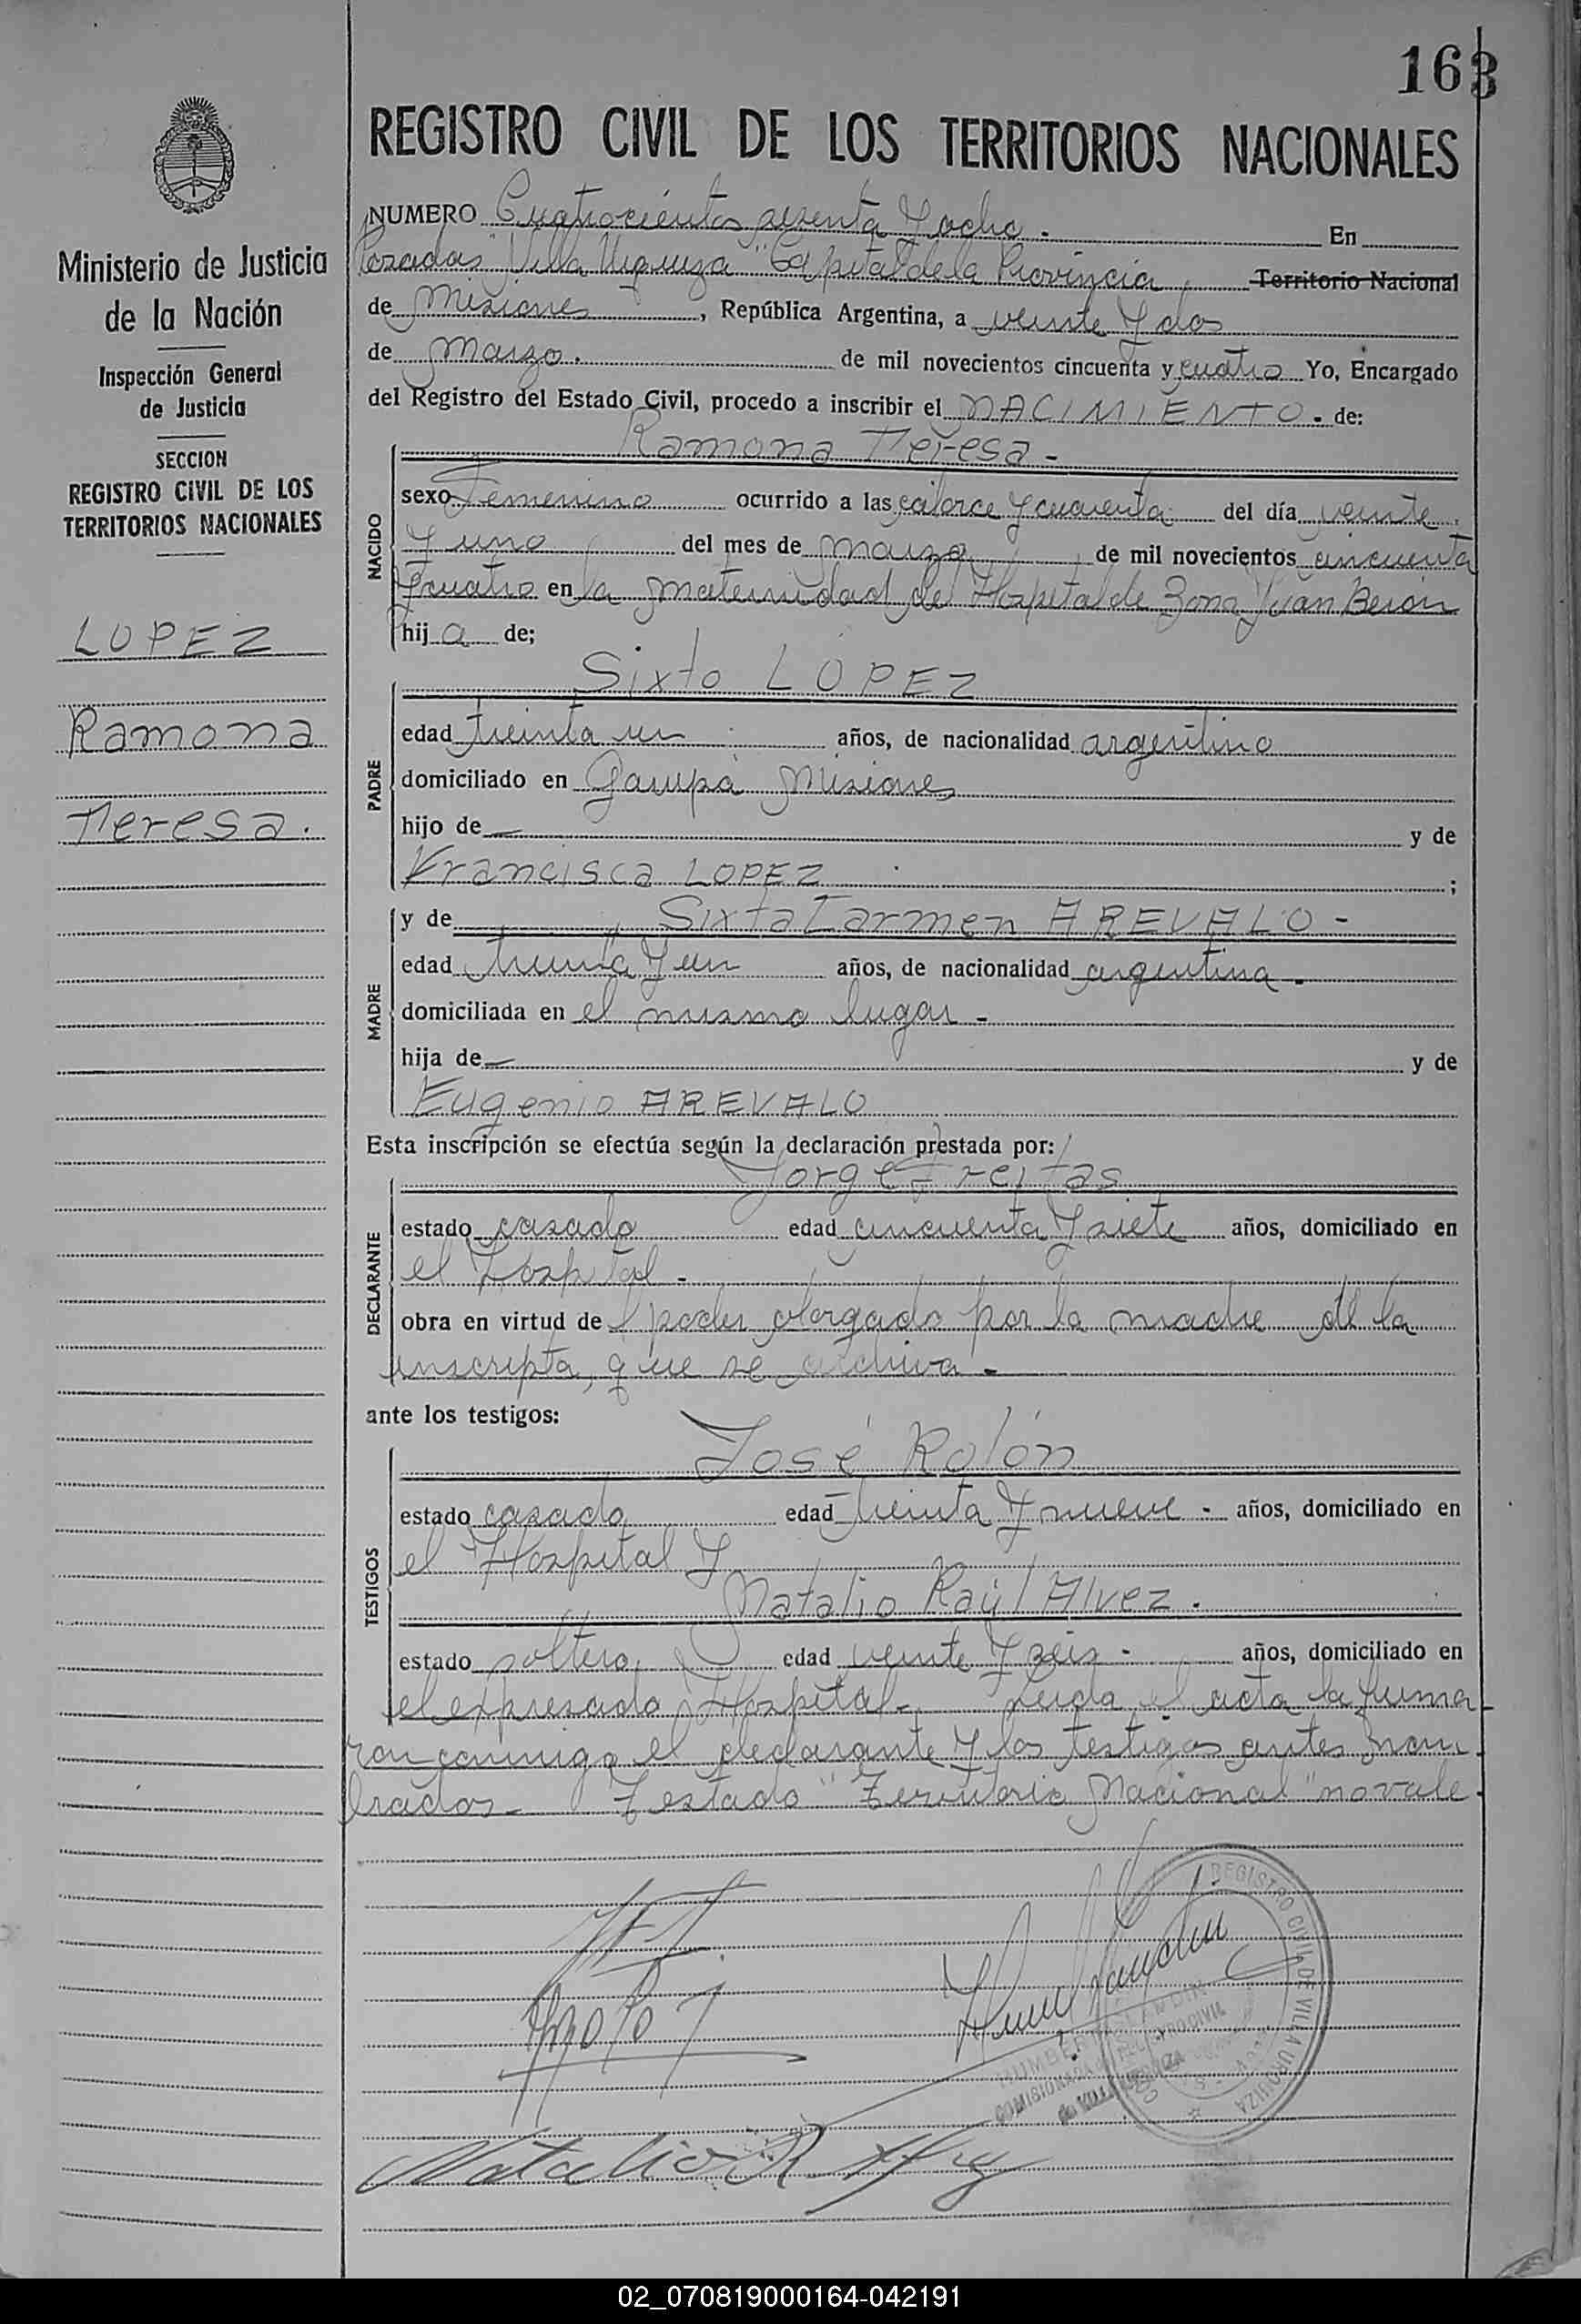 163
REGISTRO CIVIL DE LOS TERRITORIOS NACIONALES
Ministerio de Justicia
de la Nación
Inspección General
de Justicia
SECCION
REGISTRO CIVIL DE LOS
TERRITORIOS NACIONALES
LOPEZ
Ramona
Teresa.
NUMERO Cuatrocientos sesenta y ocho - En
Posadas "Villa Urquiza" Capital de la Provincia Territorio Nacional
de Misiones, República Argentina, a veinte y dos
de marzo. de mil novecientos cincuenta y cuatro Yo, Encargado
del Registro del Estado Civil, procedo a inscribir el NACIMIENTO - de:
Ramona Teresa -
NACIDO
sexo Femenino ocurrido a las catorce y cuarenta del día veinte
y uno del mes de marzo de mil novecientos cincuenta
y cuatro en la maternidad del Hospital de Zona Juan Beron
hija de;
Sixto LOPEZ
PADRE
edad treinta un años, de nacionalidad argentino
domiciliado en Garupá Misiones
hijo de — y de
Francisca LOPEZ ;
MADRE
y de Sixta Carmen AREVALO -
edad treinta y un años, de nacionalidad argentina -
domiciliada en el mismo lugar -
hija de — y de
Eugenia AREVALO
Esta inscripción se efectúa según la declaración prestada por:
Jorge Freitas
DECLARANTE
estado casado edad cincuenta y siete años, domiciliado en
el Hospital -
obra en virtud del poder otorgado por la madre de la
inscripta, que se archiva -
ante los testigos:
José Rolón
TESTIGOS
estado casado edad treinta y nueve - años, domiciliado en
el Hospital y
Natalio Raúl Alvez.
estado soltero edad veinte y seis - años, domiciliado en
el expresado Hospital - Leida el acta la firma
ron conmigo el declarante y los testigos antes nom
brados - Testado "Territorio Nacional" no vale -
REGISTRO CIVIL DE VILLA URQUIZA
02_070819000164-042191